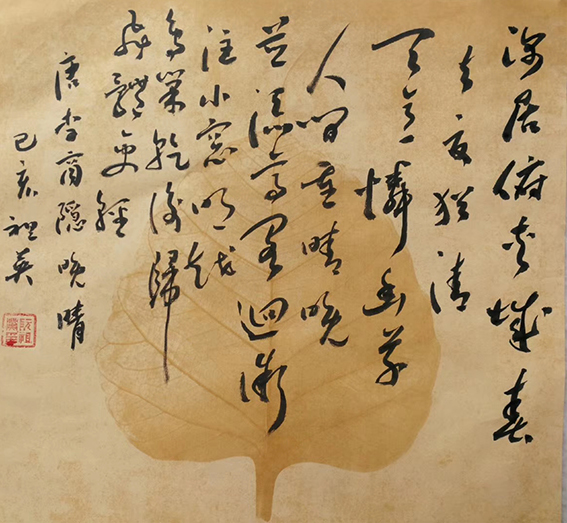 深居俯夾城春
去夏猶清
天意憐幽草
人間重晴晚
並添高閣迴微
注小窓明越
鳥巢乾後歸
飛體更輕
唐李商隱晚晴
己亥 英